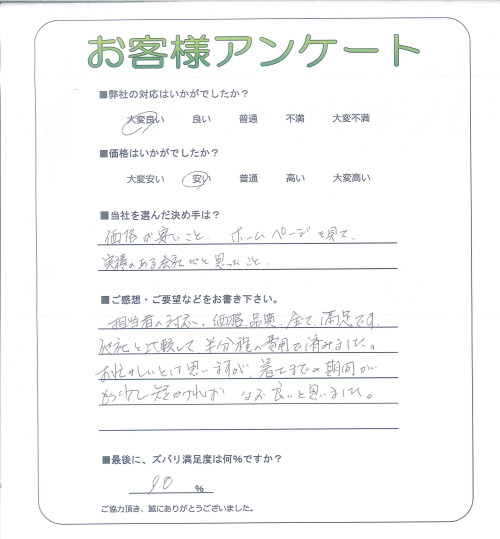 お客様アンケート
■弊社の対応はいかがでしたか？
大変良い 良い 普通 不満 大変不満
■価格はいかがでしたか？
大変安い 安い 普通 高い 大変高い
■当社を選んだ決め手は？
価格が安いこと、ホームページを見て、
実績のある会社だと思ったこと。
■ご感想・ご要望などをお書き下さい。
担当者の対応、価格、品質、全て、満足です。
他社と比較して半分程の費用で済みました。
お忙しいとは思いますが、着工までの期間が
もう少し短かければ なお良いと思いました。
■最後に、ズバリ満足度は何％ですか？
90 ％
ご協力頂き、誠にありがとうございました。